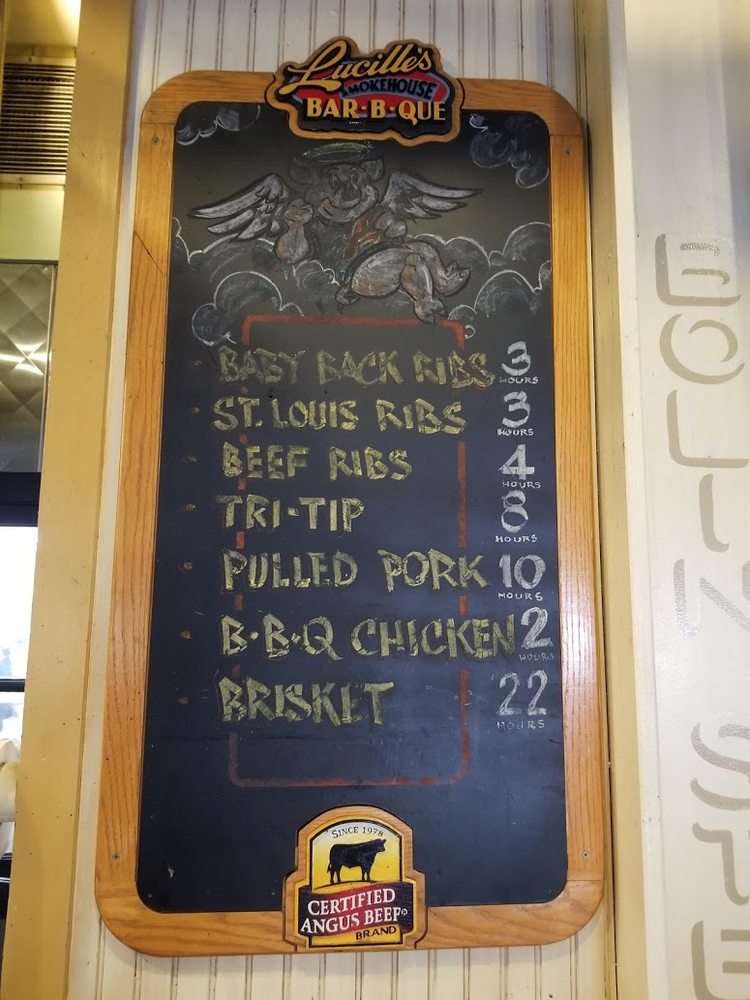 Lucille's
SMOKEHOUSE
BAR·B·QUE
BABY BACK RIBS 3 HOURS
ST. LOUIS RIBS 3 HOURS
BEEF RIBS 4 HOURS
TRI-TIP 8 HOURS
PULLED PORK 10 HOURS
B·B·Q CHICKEN 2 HOURS
BRISKET 22 HOURS
SINCE 1978
CERTIFIED
ANGUS BEEF®
BRAND